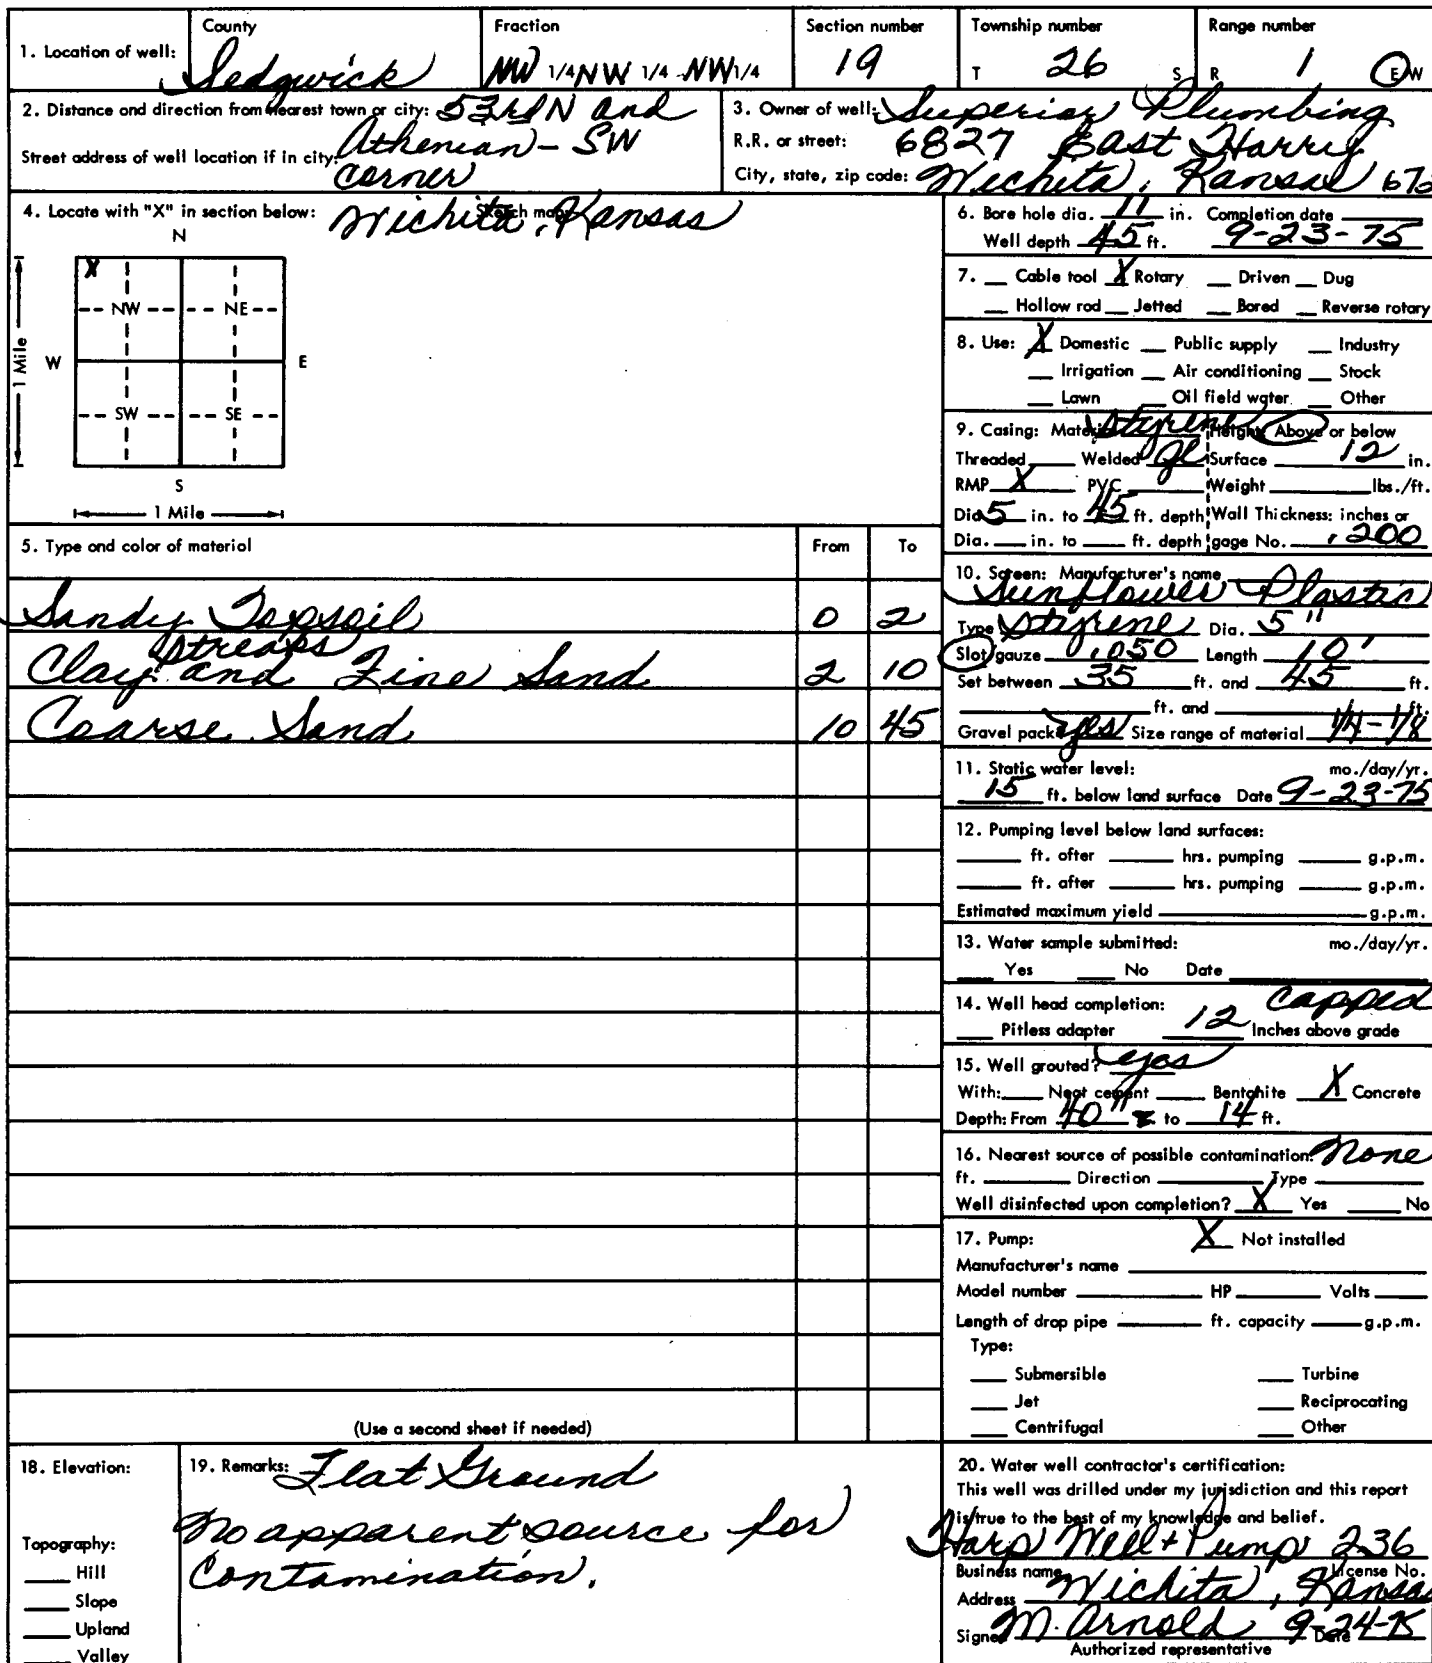 County Fraction Section number Township number Range number
1. Location of well: Sedgwick NW 1/4 NW 1/4 NW 1/4 19 T 26 S R 1 E W
2. Distance and direction from nearest town or city: 53rd N and
Athenian - SW
Street address of well location if in city:
corner
3. Owner of well: Superior Plumbing
R.R. or street: 6827 East Harry
City, state, zip code: Wichita, Kansas 672
4. Locate with "X" in section below: Wichita, Kansas Sketch map
N
X
NW NE
1 Mile W E
SW SE
S
1 Mile
5. Type and color of material From To
Sandy Topsoil 0 2
streaks
Clay and Fine Sand 2 10
Coarse Sand 10 45
(Use a second sheet if needed)
6. Bore hole dia. 11 in. Completion date
Well depth 45 ft. 9-23-75
7. Cable tool X Rotary Driven Dug
Hollow rod Jetted Bored Reverse rotary
8. Use: X Domestic Public supply Industry
Irrigation Air conditioning Stock
Lawn Oil field water Other
9. Casing: Material Styrene Height: Above or below
Threaded Welded Gl Surface 12 in.
RMP X PVC Weight lbs./ft.
Dia 5 in. to 45 ft. depth Wall Thickness: inches or
Dia. in. to ft. depth gage No. .200
10. Screen: Manufacturer's name
Sunflower Plastic
Type Styrene Dia. 5"
Slot/gauze .050 Length 10'
Set between 35 ft. and 45 ft.
ft. and ft.
Gravel pack? yes Size range of material 1/4-1/8
11. Static water level: mo./day/yr.
15 ft. below land surface Date 9-23-75
12. Pumping level below land surfaces:
ft. after hrs. pumping g.p.m.
ft. after hrs. pumping g.p.m.
Estimated maximum yield g.p.m.
13. Water sample submitted: mo./day/yr.
Yes No Date
14. Well head completion: Capped
Pitless adapter 12 Inches above grade
15. Well grouted? yes
With: Neat cement Bentonite X Concrete
Depth: From 40" to 14 ft.
16. Nearest source of possible contamination: None
ft. Direction Type
Well disinfected upon completion? X Yes No
17. Pump: X Not installed
Manufacturer's name
Model number HP Volts
Length of drop pipe ft. capacity g.p.m.
Type:
Submersible Turbine
Jet Reciprocating
Centrifugal Other
18. Elevation:
Topography:
Hill
Slope
Upland
Valley
19. Remarks: Flat Ground
No apparent source for
Contamination.
20. Water well contractor's certification:
This well was drilled under my jurisdiction and this report
is true to the best of my knowledge and belief.
Harp Well + Pump 236
Business name License No.
Address Wichita, Kansas
Signed M. Arnold 9-24-75 Date
Authorized representative